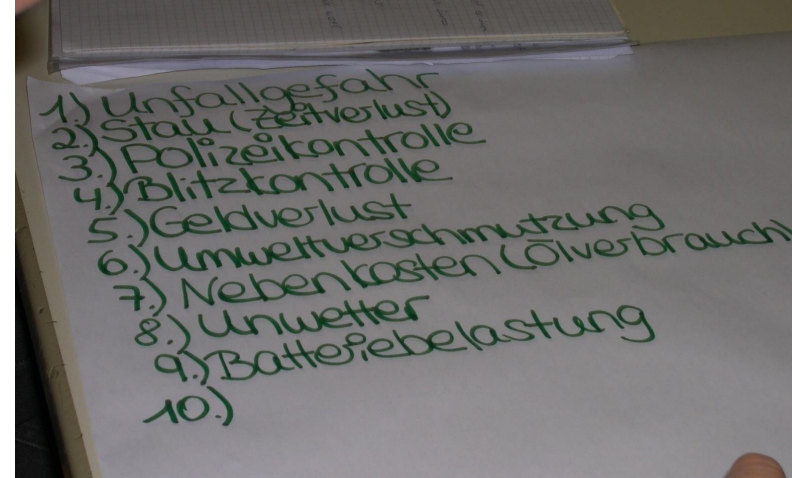 1.) Unfallgefahr
2.) Stau (Zeitverlust)
3.) Polizeikontrolle
4.) Blitzkontrolle
5.) Geldverlust
6.) Umweltverschmutzung
7.) Nebenkosten (Ölverbrauch)
8.) Unwetter
9.) Batteriebelastung
10.)